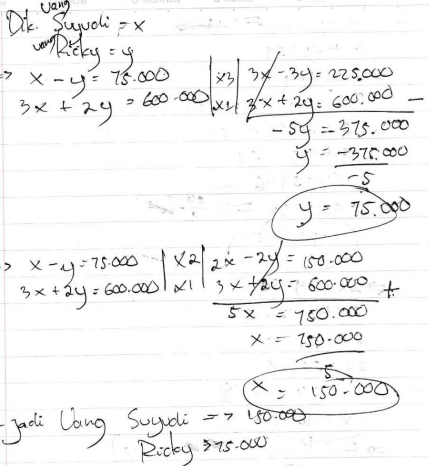 Dik. Uang Suyudi = x
uang Ricky = y
=> x - y = 75.000 | x3 | 3x - 3y = 225.000
3x + 2y = 600.000 | x1 | 3x + 2y = 600.000 -
- 5y = -375.000
y = -375.000
-5
y = 75.000
=> x - y = 75.000 | x2 | 2x - 2y = 150.000
3x + 2y = 600.000 | x1 | 3x + 2y = 600.000 +
5x = 750.000
x = 750.000
5
x = 150.000
- jadi Uang Suyudi => 150.000
Ricky => 75.000